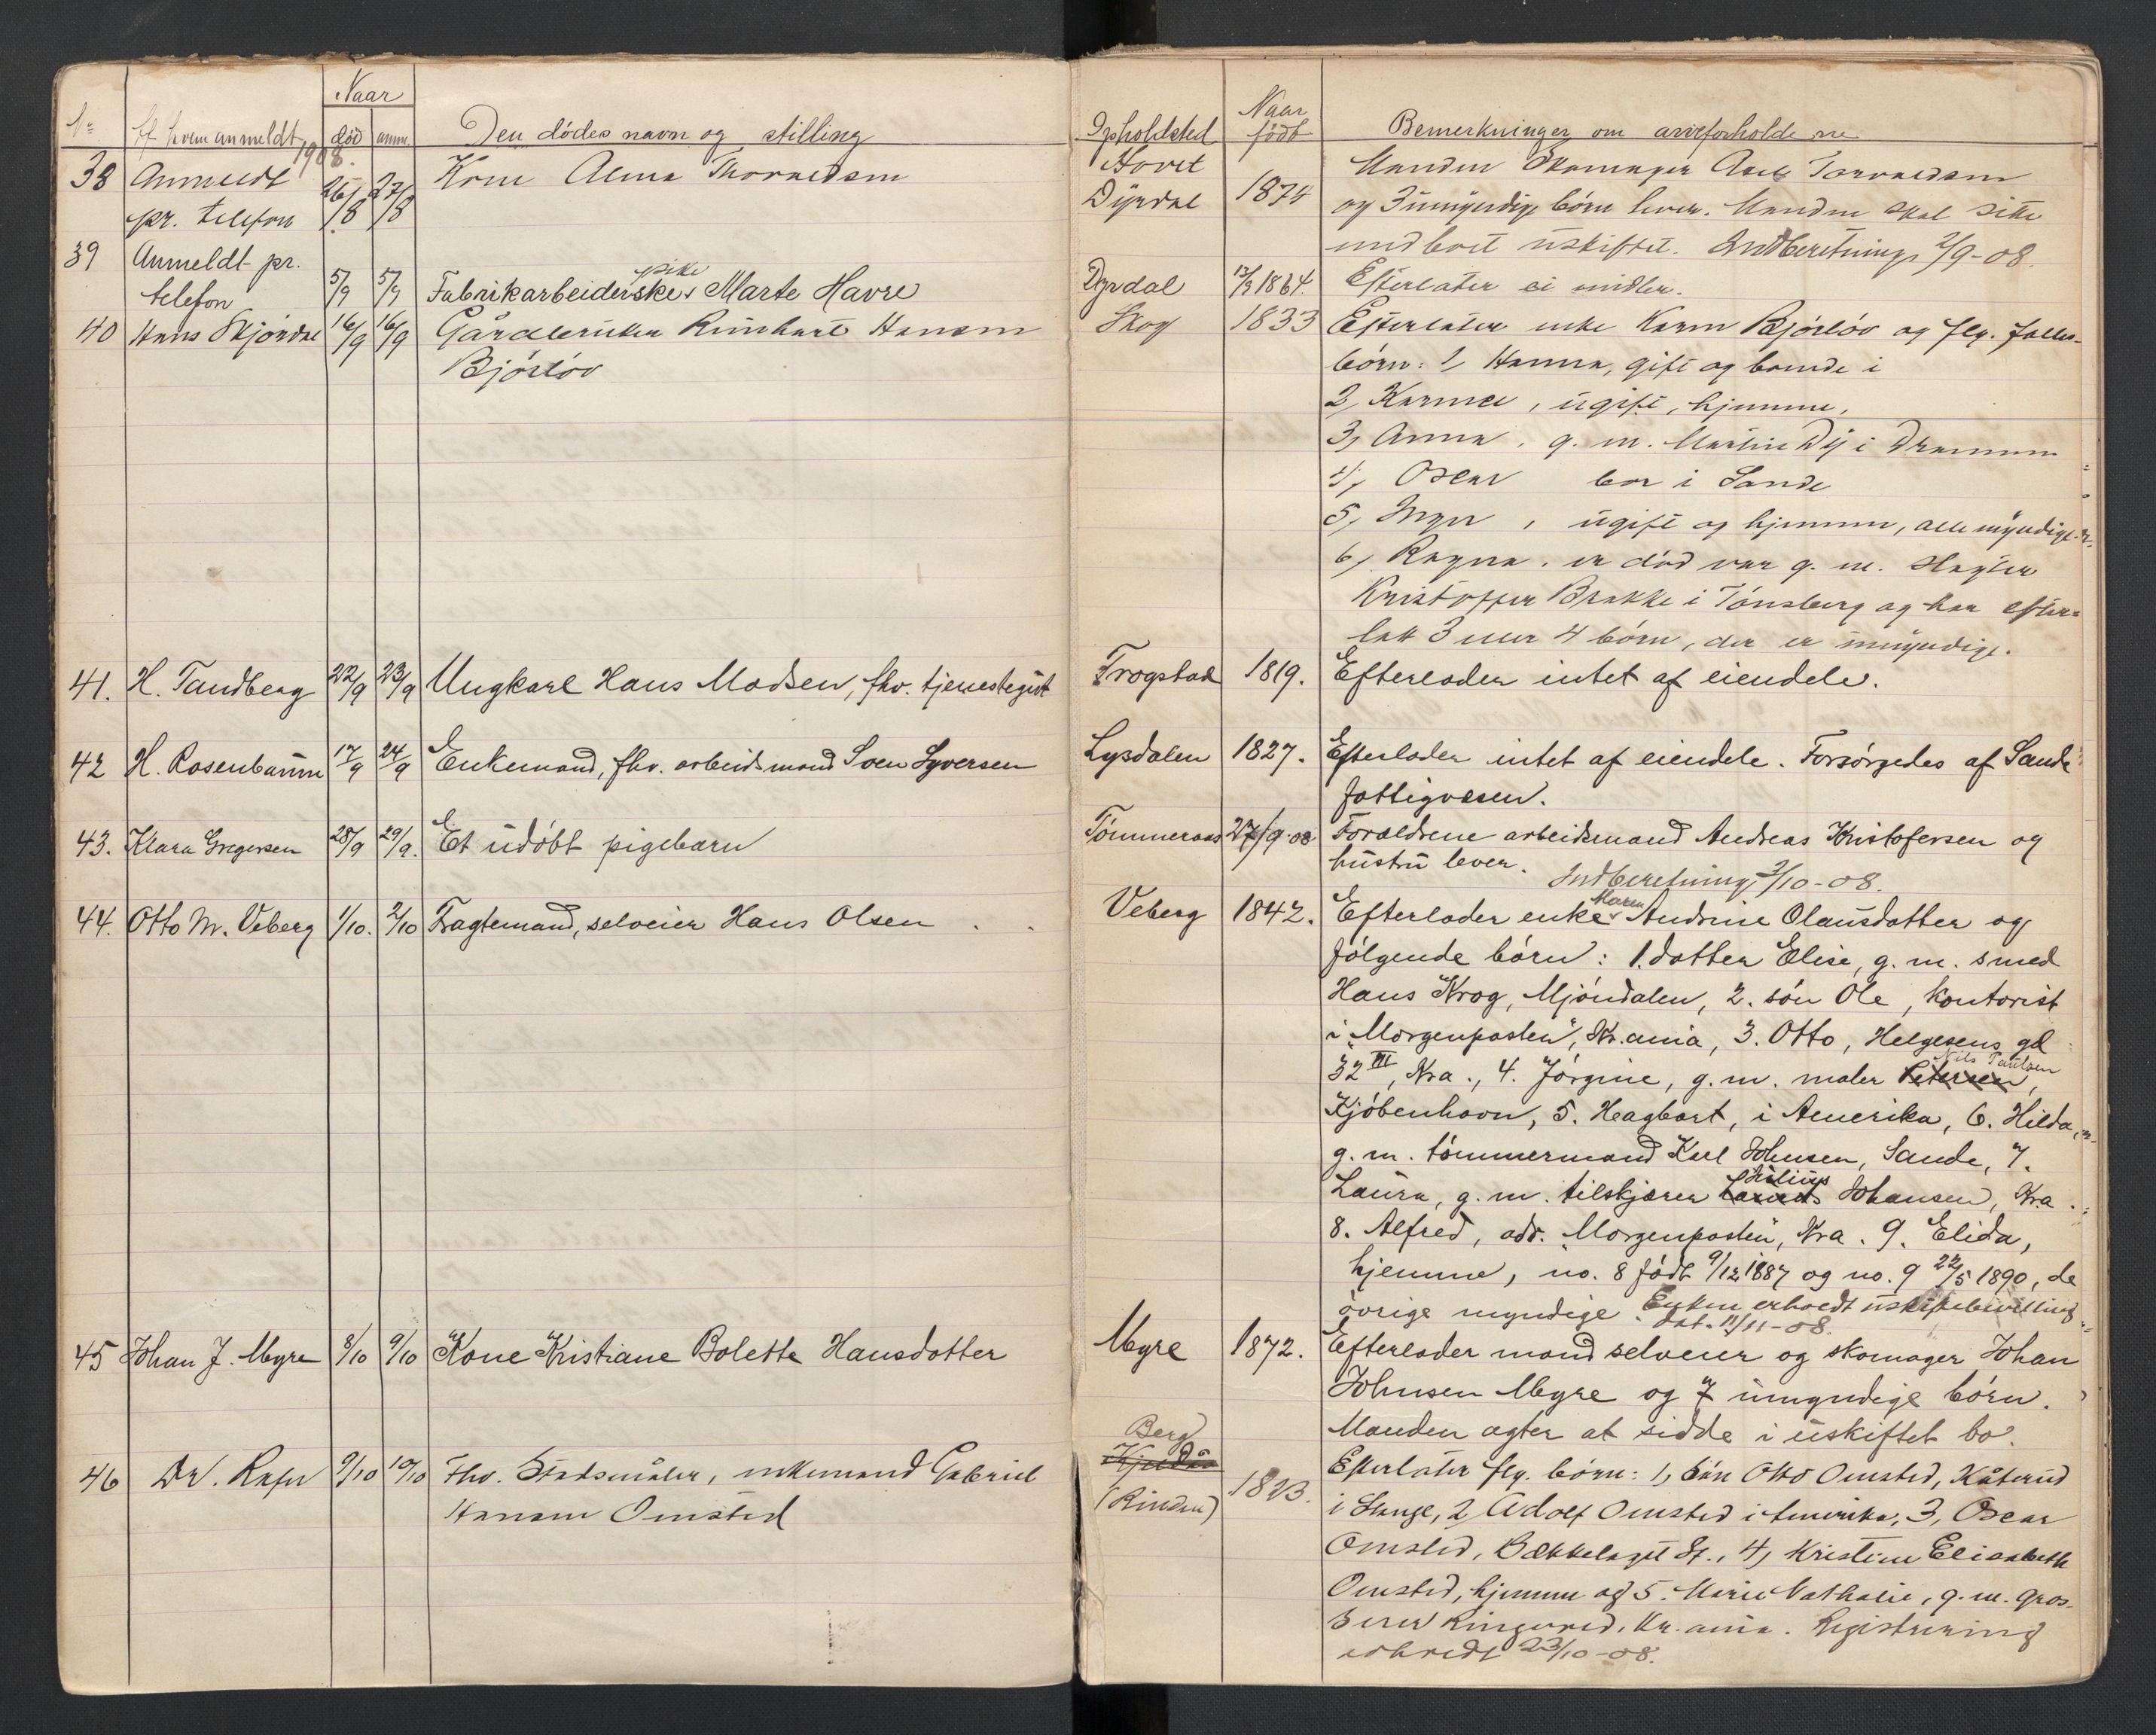 Naar
No
Af hvem anmeldt
død
anm.
Den dødes navn og stilling
1908.
38
Anmeldt
26/8
27/8
Kone Alma Thorvaldsen
pr. telefon
39
Anmeldt pr.
telefon
5/9
5/9
pike
Fabrikarbeiderske Marte Havre
40
Hans Skjørdal
16/9
16/9
Gårdbruker Rinhart Hansen
Bjørløv
41.
H. Tandberg
22/9
23/9
Ungkarl Hans Madsen, fhv. tjenestegut
42
H. Rosenbaum
17/9
24/9
Enkemand, fhv. arbeidsmand Sven Syversen
43.
Klara Gregersen
28/9
29/9.
Et udøbt pigebarn
44.
Otto M. Veberg
1/10.
2/10
Fragtemand, selveier Hans Olsen
45
Johan J. Myre
8/10
9/10
Kone Kristiane Bolette Hansdatter
46
Dr.
9/10
10/10
Fhv. Stadsmåler, enkemand Gabriel
Hansen Omsted
Opholdsted
Naar
født
Bemerkninger om arveforholdene
Hovet
Dyrdal
1874
Manden Skomager Axel Torvaldsen
og 3 umyndige børn lever. Manden skal sitte
med boet uskiftet. Indberetning 2/9-08.
Dyrdal
13/9 1864.
Efterlater ei midler.
Skog
1833
Efterlater enke Karen Bjørløv og flg. fælles-
børn: 1, Hanna, gift og boende i
2, Karma, ugift, hjemme,
3, Anna, g. m. Martin Dy i Drammen
4, Oscar bor i Sande
5, Inga, ugift og hjemme, alle myndige.
6, Ragna. er død var g. m.
Kristoffer Brakke i Tønsberg og har efter-
latt 3 eller 4 børn, der er umyndige.
Frogstad
1819.
Efterlader intet af eiendele.
Lysdalen
1827.
Efterlader intet af eiendele. Forsørgedes af Sande
fattigvæsen.
Tømmeraas
27/9-08
Forældrene arbeidsmand Andreas Kristofersen og
hustru lever. Indberetning 3/10-08.
Veberg
1842.
Maren
Efterlader enke Andrine Olausdatter og
følgende børn: 1. datter Elise, g. m. smed
Hans Krog, Mjøndalen, 2. søn Ole, kontorist
i „Morgenposten", Kr.ania, 3. Otto, Helgesens gd
Nils Paulsen
32 III, Kra., 4. Jørgine, g. m. maler Petersen,
Kjøbenhavn, 5. Hagbart, i Amerika, 6. Hilda,
g. m. tømmermand Karl Johnsen, Sande, 7.
Julius
Laura, g. m. tilskjærer Laurits Johansen, Kra.
8. Alfred, adr. „Morgenposten", Kra. 9. Elida,
hjemme, no. 8 født 9/12 1887 og no. 9 22/5 1890, de
øvrige myndige. Enken erholdt uskiftebevilling
dat. 11/11-08.
Myre
1872.
Efterlader mand selveier og skomager Johan
Johnsen Myre og 7 umyndige børn.
Manden agter at sidde i uskiftet bo.
Berg
(Rinden)
1823.
Efterlater flg. børn: 1, søn Otto Omsted, Kåterud
i Stange, 2, Adolf Omsted i Amerika, 3, Oscar
Omsted, Bækkelaget St., 4, Kristine Elisabeth
Omsted, hjemme og 5. Marie Nathalie, g. m. gros-
serer Ringnæs, Kr.ania. Registrering
23/10-08.